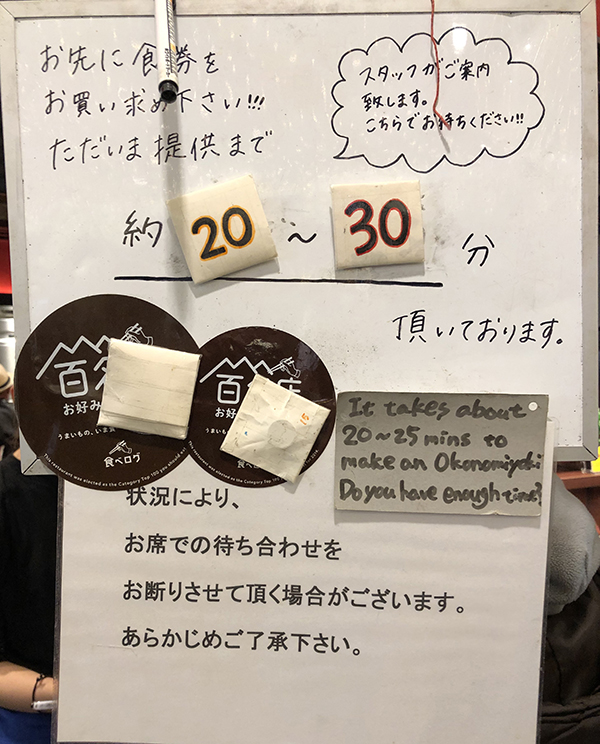 お先に食券を
お買い求め下さい!!!
ただいま提供まで
スタッフがご案内
致します。
こちらでお待ちください!!
約 20 ~ 30 分
頂いております。
百
お好み
うまいもの、いま
食べログ
This restaurant was elected as the Category Top 100 you should eat
百 店
お好み
うまいもの
食べログ
It takes about
20~25 mins to
make an Okonomiyaki
Do you have enough time?
状況により、
お席での待ち合わせを
お断りさせて頂く場合がございます。
あらかじめご了承下さい。